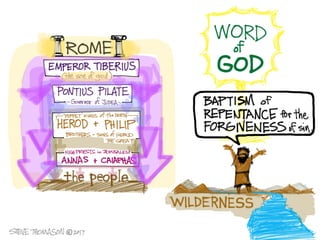 ROME
EMPEROR TIBERIUS
(the son of god)
PONTIUS PILATE
- Governor of JUDEA -
PUPPET KINGS of the NORTH
HEROD + PHILIP
BROTHERS - SONS of HEROD
THE GREAT
HIGH PRIESTS in JERUSALEM
ANNAS + CAIAPHAS
the people
WORD
of
GOD
BAPTISM of
REPENTANCE for the
FORGIVENESS of sin
WILDERNESS
STEVE THOMASON © 2017